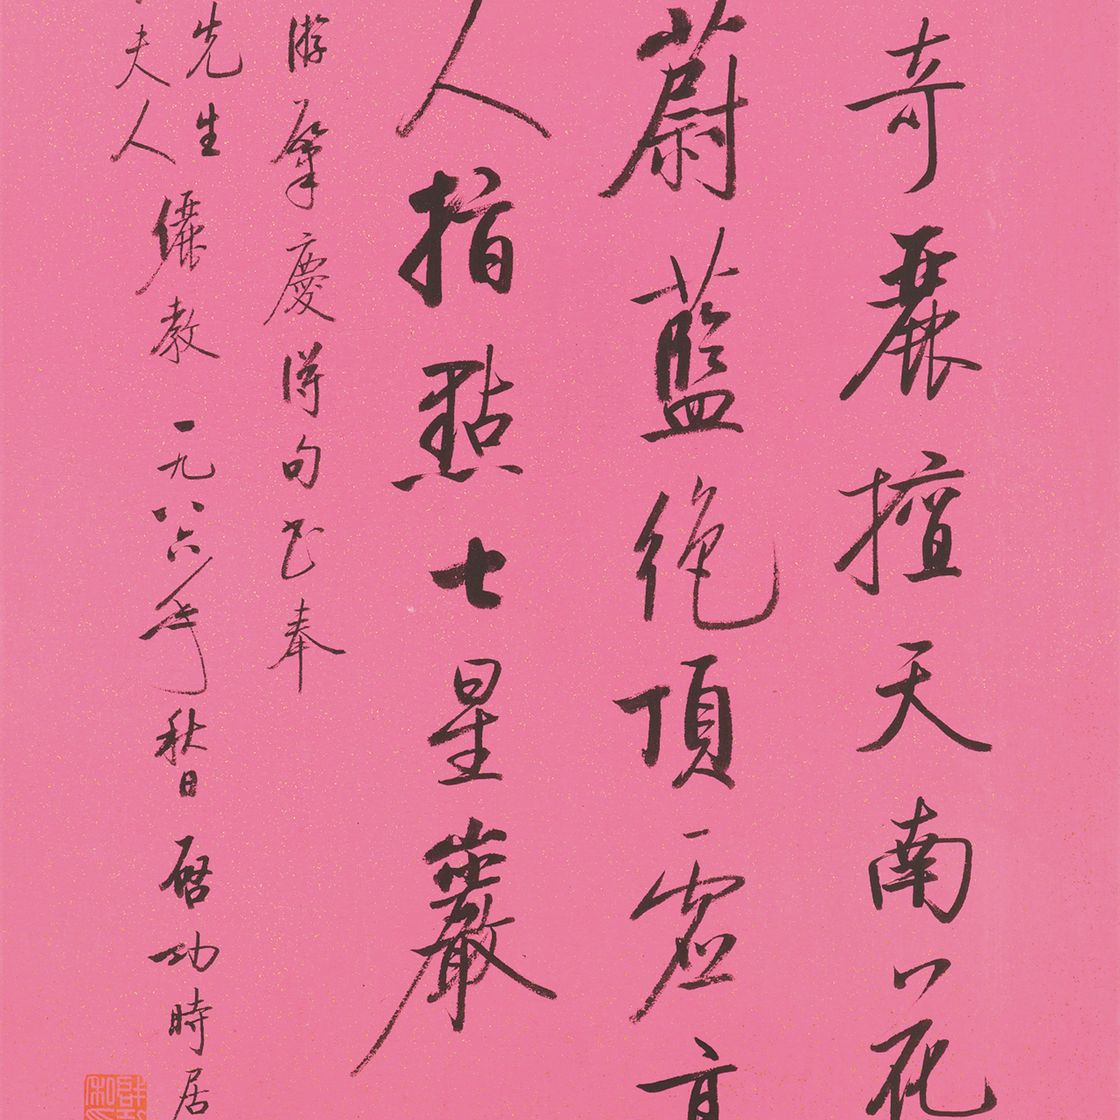 奇麗擅天南花
蔚藍絕頂虛亭
人指點七星巖
游肇慶得句書奉
先生
夫人
儷教一九八六年秋日啓功時居